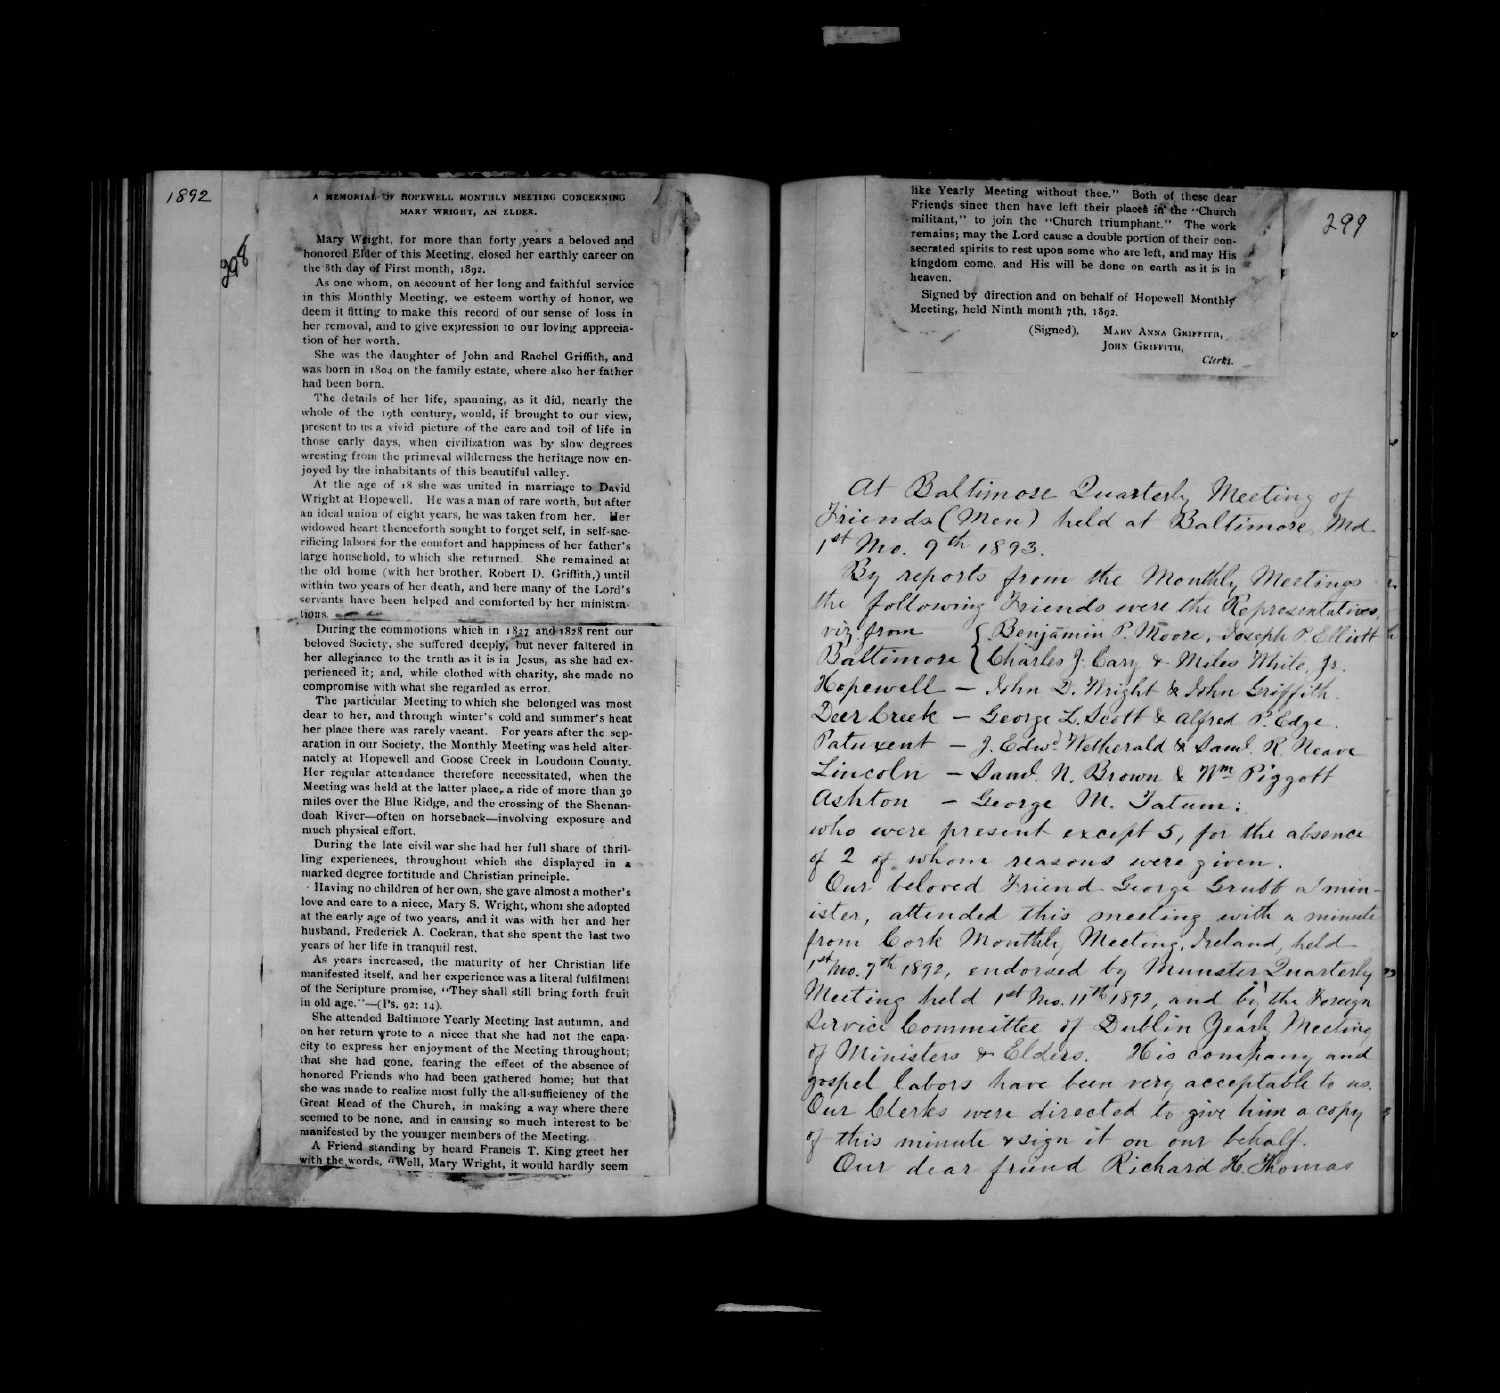 1892
298
A MEMORIAL OF HOPEWELL MONTHLY MEETING CONCERNING
MARY WRIGHT, AN ELDER.
Mary Wright, for more than forty years a beloved and
honored Elder of this Meeting, closed her earthly career on
the 8th day of First month, 1892.
As one whom, on account of her long and faithful service
in this Monthly Meeting, we esteem worthy of honor, we
deem it fitting to make this record of our sense of loss in
her removal, and to give expression to our loving apprecia-
tion of her worth.
She was the daughter of John and Rachel Griffith, and
was born in 1804 on the family estate, where also her father
had been born.
The details of her life, spanning, as it did, nearly the
whole of the 19th century, would, if brought to our view,
present to us a vivid picture of the care and toil of life in
those early days, when civilization was by slow degrees
wresting from the primeval wilderness the heritage now en-
joyed by the inhabitants of this beautiful valley.
At the age of 18 she was united in marriage to David
Wright at Hopewell. He was a man of rare worth, but after
an ideal union of eight years, he was taken from her. Her
widowed heart thenceforth sought to forget self, in self-sac-
rificing labors for the comfort and happiness of her father's
large household, to which she returned. She remained at
the old home (with her brother, Robert D. Griffith,) until
within two years of her death, and here many of the Lord's
servants have been helped and comforted by her ministra-
tions.
During the commotions which in 1827 and 1828 rent our
beloved Society, she suffered deeply, but never faltered in
her allegiance to the truth as it is in Jesus, as she had ex-
perienced it; and, while clothed with charity, she made no
compromise with what she regarded as error.
The particular Meeting to which she belonged was most
dear to her, and through winter's cold and summer's heat
her place there was rarely vacant. For years after the sep-
aration in our Society, the Monthly Meeting was held alter-
nately at Hopewell and Goose Creek in Loudoun County.
Her regular attendance therefore necessitated, when the
Meeting was held at the latter place, a ride of more than 30
miles over the Blue Ridge, and the crossing of the Shenan-
doah River—often on horseback—involving exposure and
much physical effort.
During the late civil war she had her full share of thril-
ling experiences, throughout which she displayed in a
marked degree fortitude and Christian principle.
Having no children of her own, she gave almost a mother's
love and care to a niece, Mary S. Wright, whom she adopted
at the early age of two years, and it was with her and her
husband, Frederick A. Cockran, that she spent the last two
years of her life in tranquil rest.
As years increased, the maturity of her Christian life
manifested itself, and her experience was a literal fulfilment
of the Scripture promise, "They shall still bring forth fruit
in old age."—(Ps. 92: 14).
She attended Baltimore Yearly Meeting last autumn, and
on her return wrote to a niece that she had not the capa-
city to express her enjoyment of the Meeting throughout;
that she had gone, fearing the effect of the absence of
honored Friends who had been gathered home; but that
she was made to realize most fully the all-sufficiency of the
Great Head of the Church, in making a way where there
seemed to be none, and in causing so much interest to be
manifested by the younger members of the Meeting.
A Friend standing by heard Francis T. King greet her
with the words, "Well, Mary Wright, it would hardly seem
299
like Yearly Meeting without thee." Both of these dear
Friends since then have left their places in the "Church
militant," to join the "Church triumphant." The work
remains; may the Lord cause a double portion of their con-
secrated spirits to rest upon some who are left, and may His
kingdom come, and His will be done on earth as it is in
heaven.
Signed by direction and on behalf of Hopewell Monthly
Meeting, held Ninth month 7th, 1892.
(Signed), MARY ANNA GRIFFITH,
JOHN GRIFFITH,
Clerks.
At Baltimore Quarterly Meeting of
Friends (Men) held at Baltimore, Md.
1st Mo. 9th 1893.
By reports from the Monthly Meetings
the following Friends were the Representatives,
viz. from { Benjamin P. Moore, Joseph P. Elliott
Baltimore { Charles J. Cary & Miles White, Jr.
Hopewell — John D. Wright & John Griffith.
Deer Creek — George L. Scott & Alfred P. Edge.
Patuxent — J. Edwd. Wetherald & Saml. R. Neave
Lincoln — Saml. N. Brown & Wm Piggott
Ashton — George M. Tatum;
who were present except 5, for the absence
of 2 of whom reasons were given.
Our beloved Friend George Grubb a min-
ister, attended this meeting with a minute
from Cork Monthly Meeting, Ireland, held
1st Mo. 7th 1892, endorsed by Munster Quarterly
Meeting held 1st Mo. 11th 1892, and by the Foreign
Service Committee of Dublin Yearly Meeting
of Ministers & Elders. His company and
gospel labors have been very acceptable to us.
Our Clerks were directed to give him a copy
of this minute & sign it on our behalf.
Our dear friend Richard H. Thomas